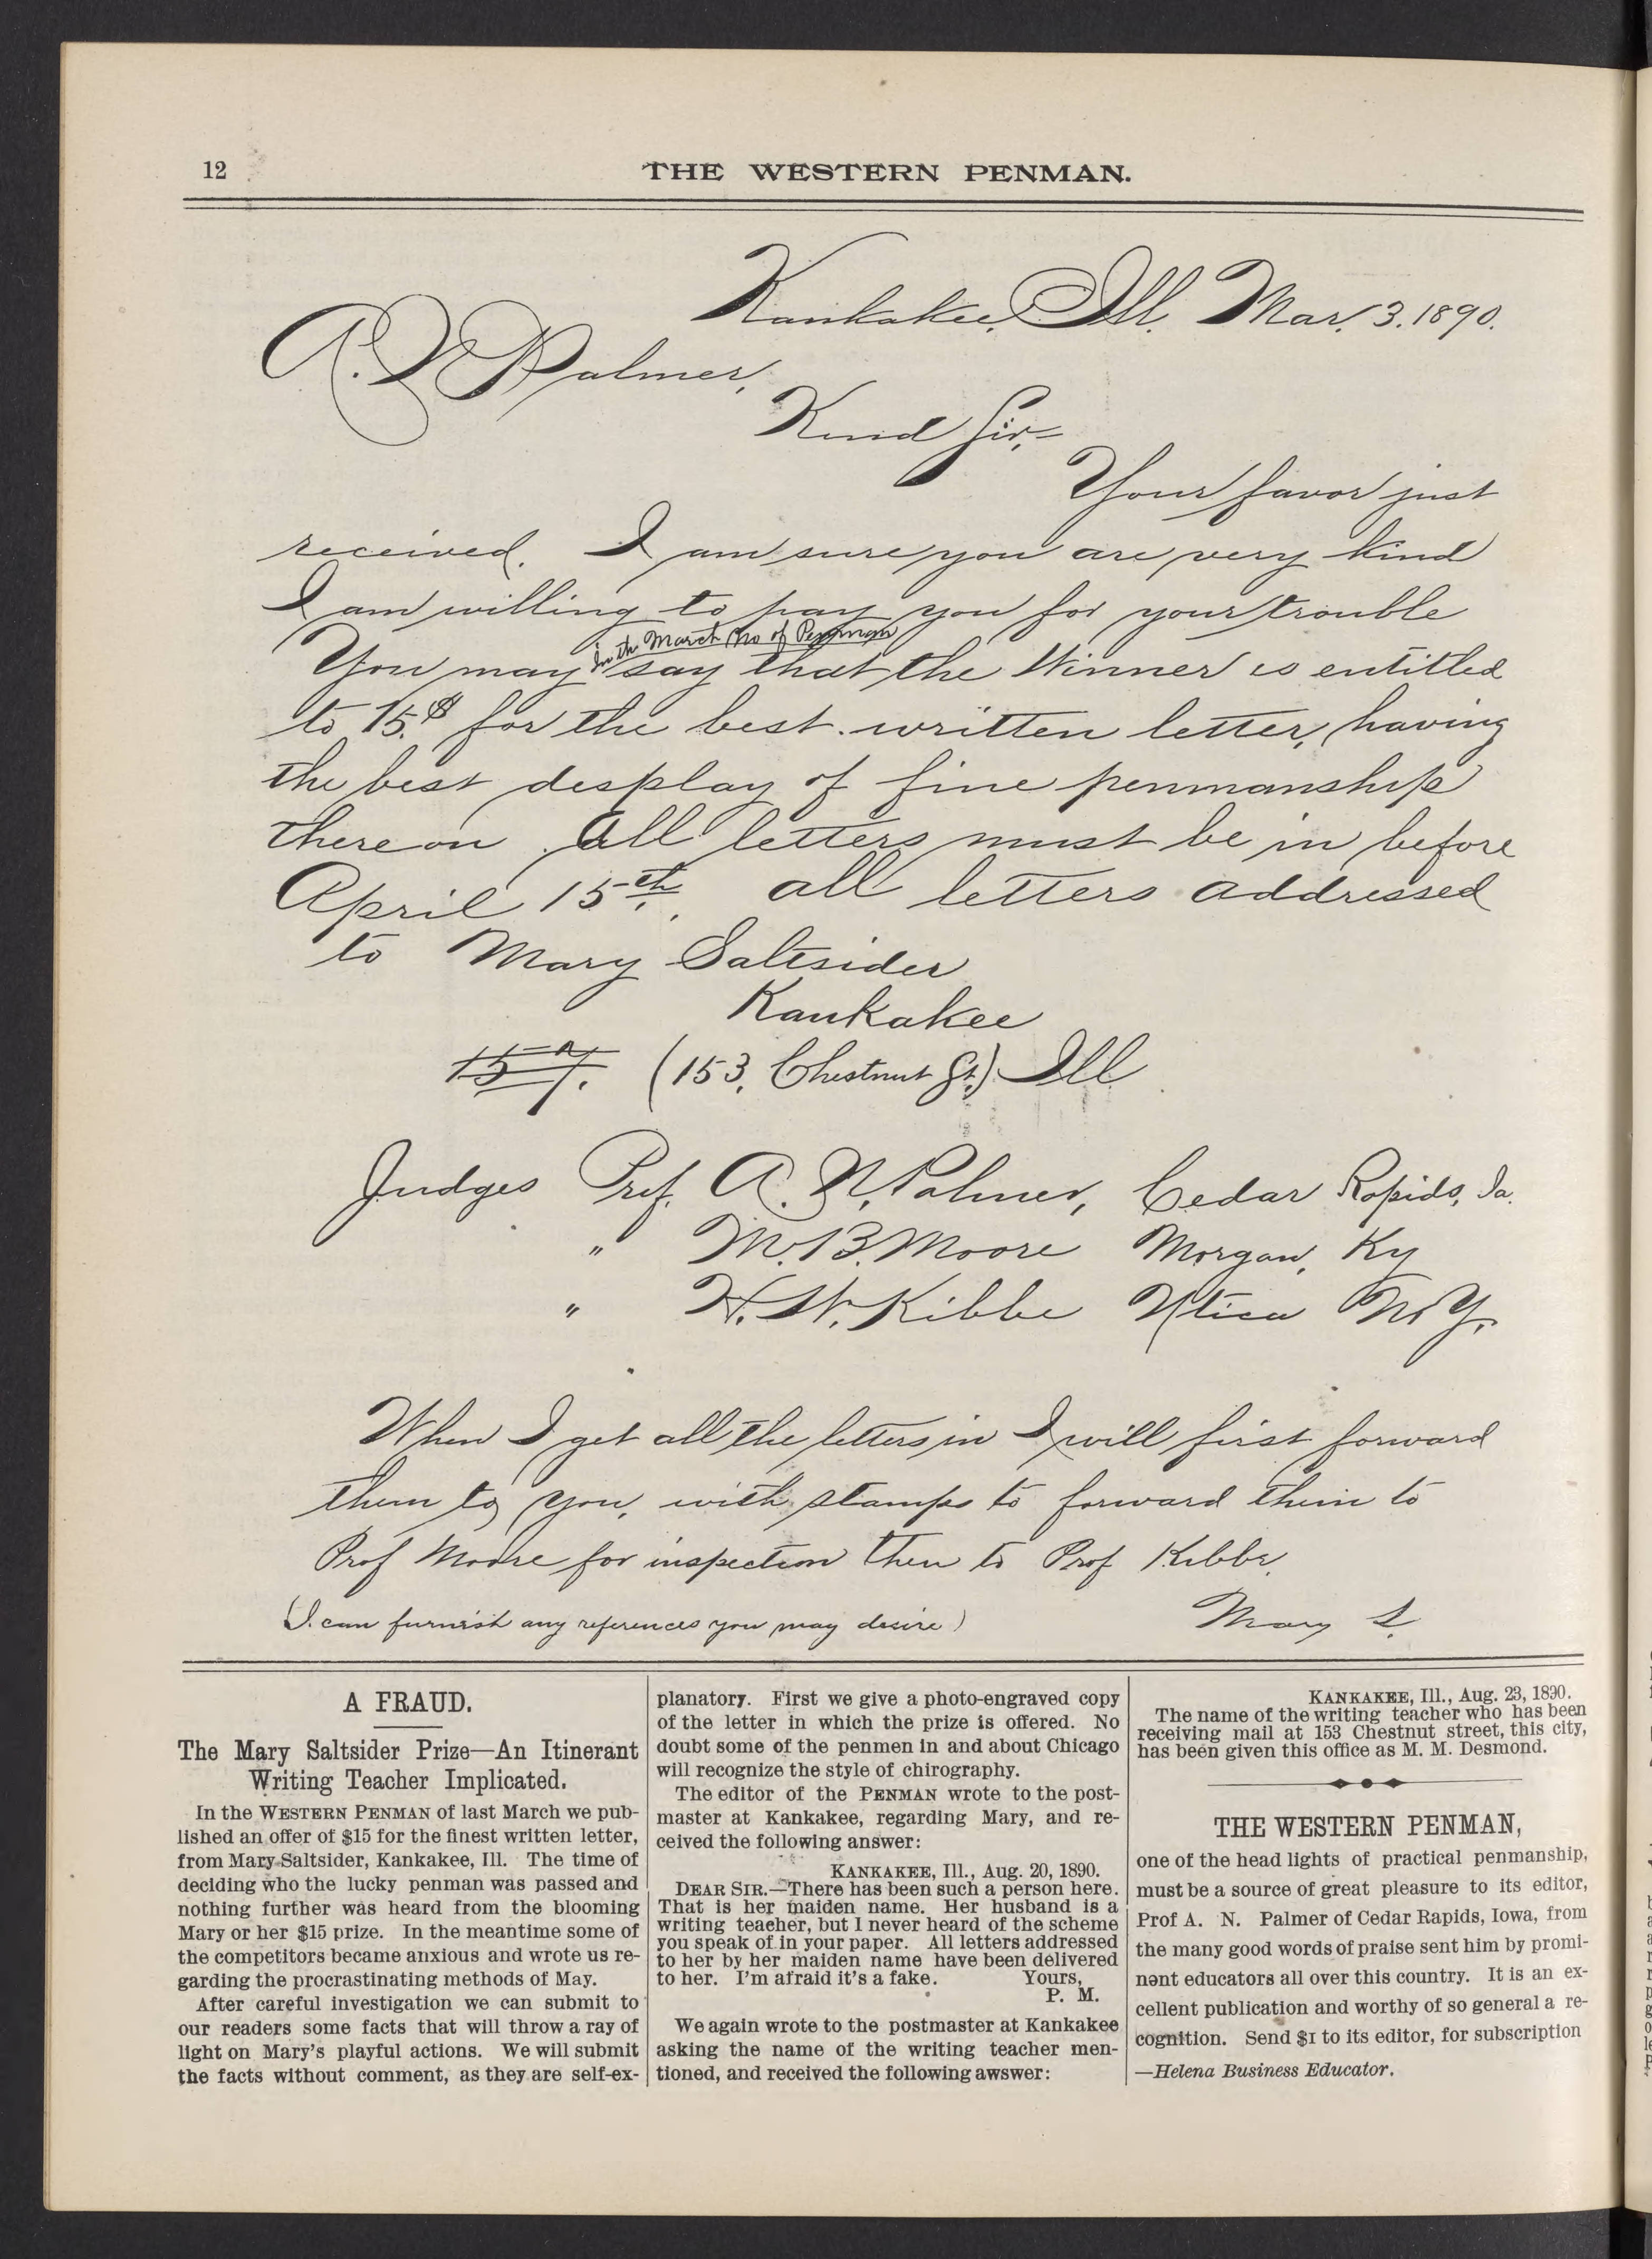 12
THE WESTERN PENMAN.
Kankakee, Ill. Mar. 3. 1890.
A. N. Palmer,
Kind Sir,=
Your favor just
received. I am sure you are very kind
I am willing to pay you for your trouble
In th March No of Penman
You may say that the Winner is entitled
to 15.$ for the best written letter, having
the best display of fine penmanship
thereon. All letters must be in before
April 15th. all letters addressed
to Mary Saltsider
Kankakee
(153, Chestnut St.) Ill
Judges Prof. A. N. Palmer, Cedar Rapids, Ia.
" M. B. Moore Morgan, Ky
" H. W. Kibbe Utica N. Y.
When I get all the letters in I will first forward
them to you, with stamps to forward them to
Prof Moore for inspection then to Prof Kibbe.
(I can furnish any references you may desire) Mary S.
A FRAUD.
The Mary Saltsider Prize—An Itinerant
Writing Teacher Implicated.
In the WESTERN PENMAN of last March we pub-
lished an offer of $15 for the finest written letter,
from Mary Saltsider, Kankakee, Ill. The time of
deciding who the lucky penman was passed and
nothing further was heard from the blooming
Mary or her $15 prize. In the meantime some of
the competitors became anxious and wrote us re-
garding the procrastinating methods of May.
After careful investigation we can submit to
our readers some facts that will throw a ray of
light on Mary's playful actions. We will submit
the facts without comment, as they are self-ex-
planatory. First we give a photo-engraved copy
of the letter in which the prize is offered. No
doubt some of the penmen in and about Chicago
will recognize the style of chirography.
The editor of the PENMAN wrote to the post-
master at Kankakee, regarding Mary, and re-
ceived the following answer:
KANKAKEE, Ill., Aug. 20, 1890.
DEAR SIR.—There has been such a person here.
That is her maiden name. Her husband is a
writing teacher, but I never heard of the scheme
you speak of in your paper. All letters addressed
to her by her maiden name have been delivered
to her. I'm afraid it's a fake. Yours,
P. M.
We again wrote to the postmaster at Kankakee
asking the name of the writing teacher men-
tioned, and received the following awswer:
KANKAKEE, Ill., Aug. 23, 1890.
The name of the writing teacher who has been
receiving mail at 153 Chestnut street, this city,
has been given this office as M. M. Desmond.
THE WESTERN PENMAN,
one of the head lights of practical penmanship,
must be a source of great pleasure to its editor,
Prof A. N. Palmer of Cedar Rapids, Iowa, from
the many good words of praise sent him by promi-
nent educators all over this country. It is an ex-
cellent publication and worthy of so general a re-
cognition. Send $1 to its editor, for subscription
—Helena Business Educator.